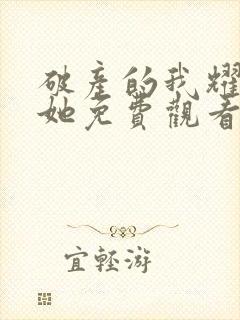 破產的我耀
她免費觀看
宜輕游